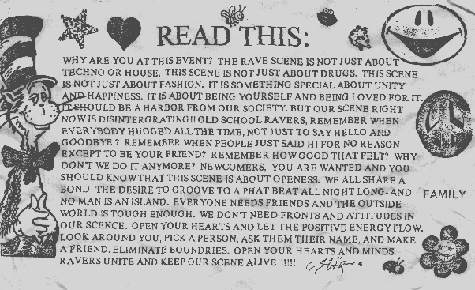 READ THIS:
WHY ARE YOU AT THIS EVENT? THE RAVE SCENE IS NOT JUST ABOUT
TECHNO OR HOUSE. THIS SCENE IS NOT JUST ABOUT DRUGS. THIS SCENE
IS NOT JUST ABOUT FASHION. IT IS SOMETHING SPECIAL ABOUT UNITY
AND HAPPINESS. IT IS ABOUT BEING YOURSELF AND BEING LOVED FOR IT.
IT SHOULD BE A HARBOR FROM OUR SOCIETY. BUT OUR SCENE RIGHT
NOW IS DISINTERGRATING!! OLD SCHOOL RAVERS, REMEMBER WHEN
EVERYBODY HUGGED ALL THE TIME, NOT JUST TO SAY HELLO AND
GOODBYE? REMEMBER WHEN PEOPLE JUST SAID HI FOR NO REASON
EXCEPT TO BE YOUR FRIEND? REMEMBER HOW GOOD THAT FELT? WHY
DON'T WE DO IT ANYMORE? NEWCOMERS, YOU ARE WANTED AND YOU
SHOULD KNOW THAT THIS SCENE IS ABOUT OPENESS. WE ALL SHARE A
BOND. THE DESIRE TO GROOVE TO A PHAT BEAT ALL NIGHT LONG. AND
NO MAN IS AN ISLAND. EVERYONE NEEDS FRIENDS AND THE OUTSIDE
WORLD IS TOUGH ENOUGH. WE DON'T NEED FRONTS AND ATTITUDES IN
OUR SCENCE. OPEN YOUR HEARTS AND LET THE POSITIVE ENERGY FLOW.
LOOK AROUND YOU, PICK A PERSON, ASK THEM THEIR NAME, AND MAKE
A FRIEND. ELIMINATE BOUNDRIES. OPEN YOUR HEARTS AND MINDS
RAVERS UNITE AND KEEP OUR SCENE ALIVE !!!!
FAMILY